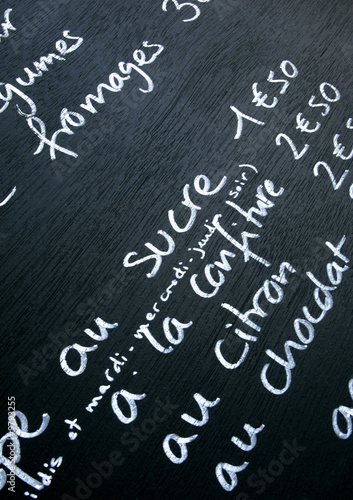 gumes
fromages
au sucre 1€50
et mardi-mercredi-jeudi soir)
à la confiture 2€50
au citron 2€
au chocolat